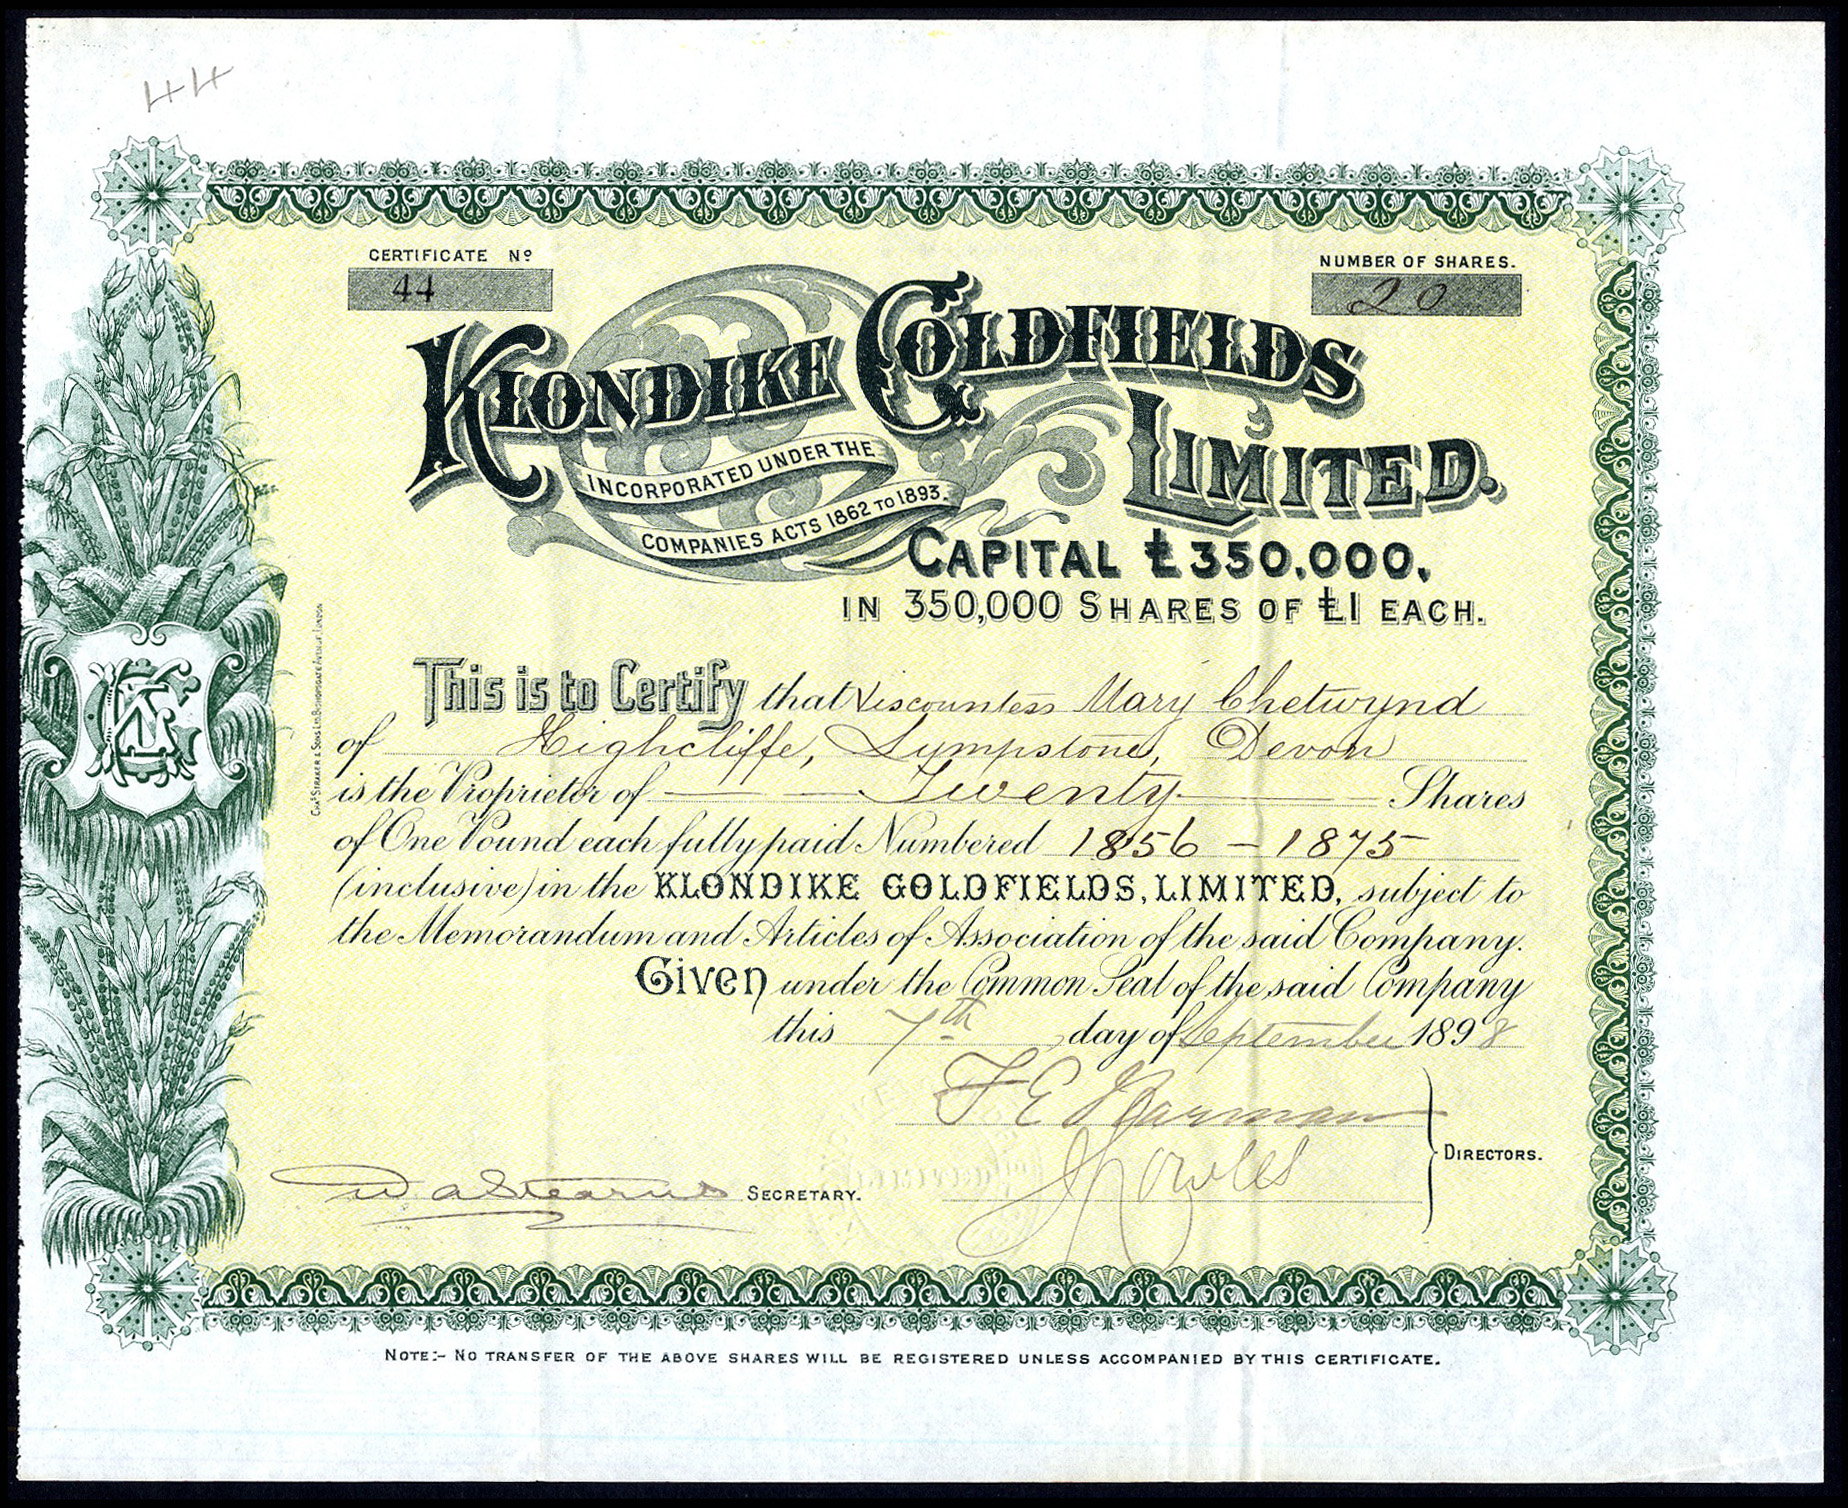 44
CERTIFICATE Nº
44
NUMBER OF SHARES.
20
KLONDIKE GOLDFIELDS
LIMITED.
INCORPORATED UNDER THE
COMPANIES ACTS 1862 TO 1893.
CAPITAL £350,000,
IN 350,000 SHARES OF £1 EACH.
This is to Certify that Viscountess Mary Chetwynd
of Highcliffe, Lympstone, Devon
is the Proprietor of Twenty Shares
of One Pound each fully paid Numbered 1856 - 1875
(inclusive) in the KLONDIKE GOLDFIELDS, LIMITED, subject to
the Memorandum and Articles of Association of the said Company.
Given under the Common Seal of the said Company
this 7th day of September 1898
F E Harman
DIRECTORS.
SECRETARY.
CHAS STRAKER & SONS LTD BISHOPSGATE AVENUE, LONDON
NOTE:- NO TRANSFER OF THE ABOVE SHARES WILL BE REGISTERED UNLESS ACCOMPANIED BY THIS CERTIFICATE.